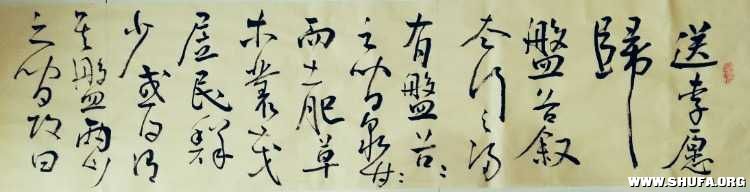 送李愿
歸
盤谷叙
太行之陽
有盤谷:
之间泉甘
而土肥草
木叢茂
居民鲜
少或曰谓
其盤兩山
之间故曰
WWW.SHUFA.ORG